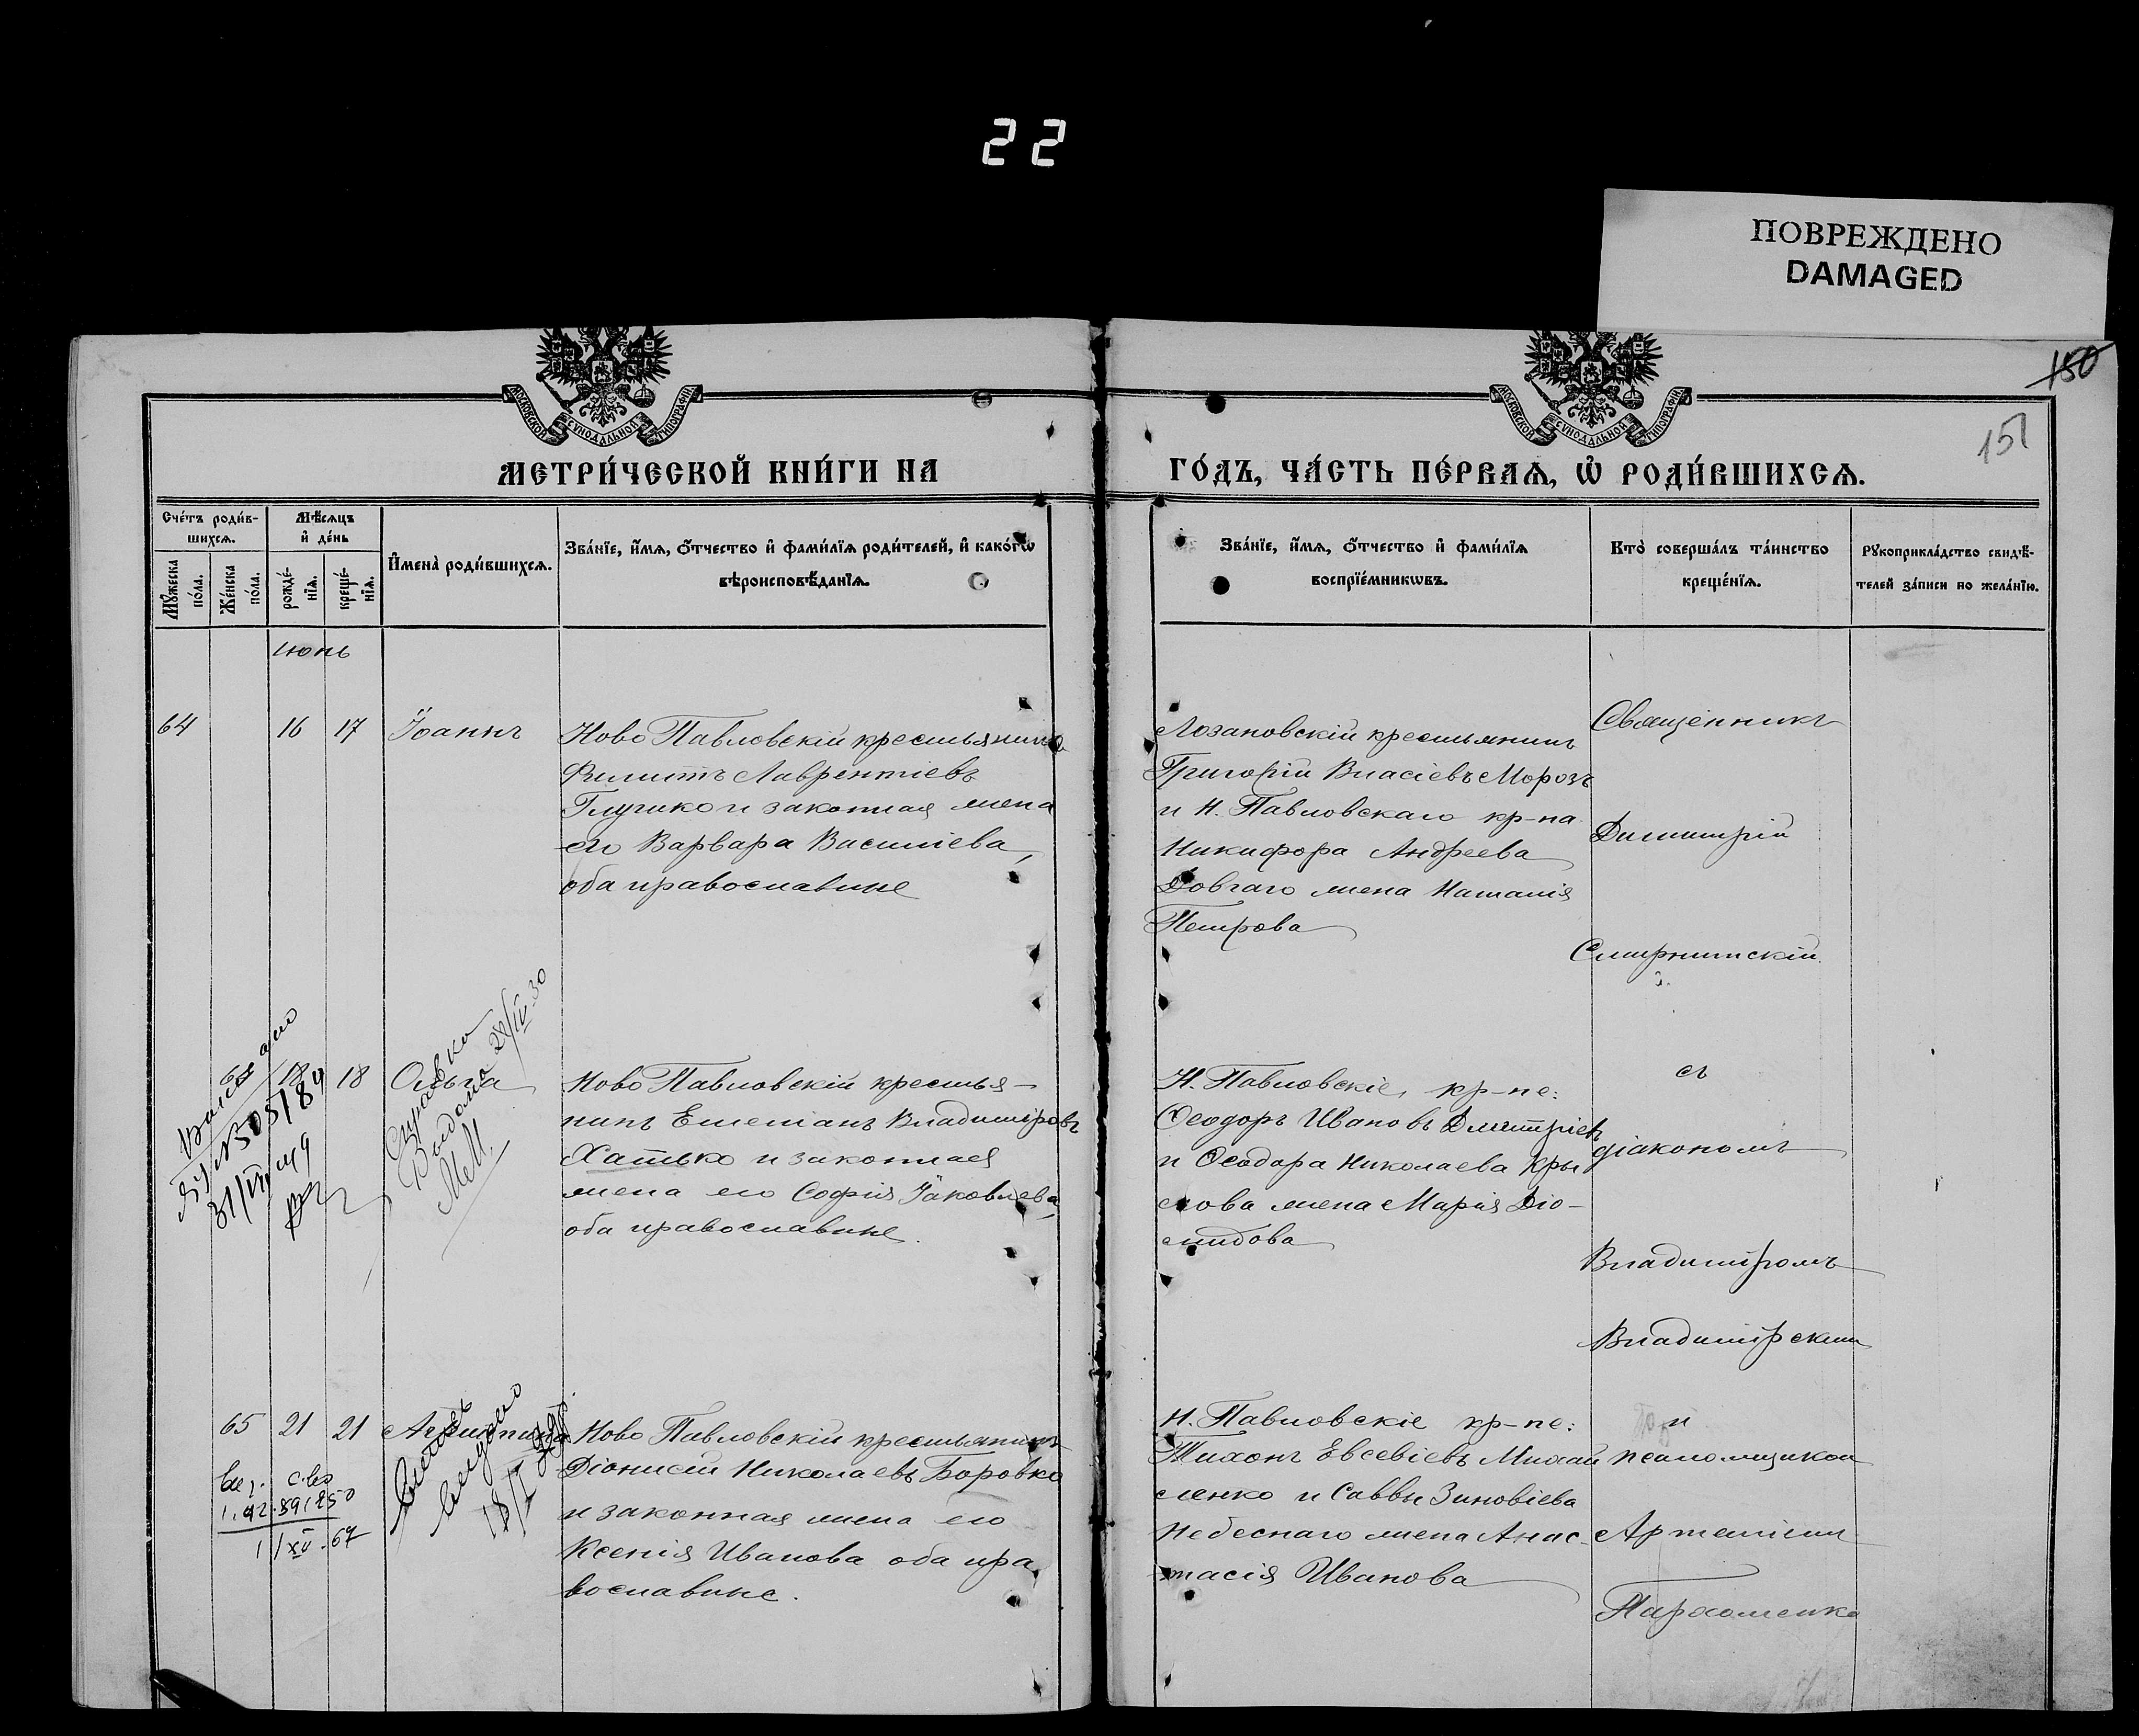 22
ПОВРЕЖДЕНО
DAMAGED
150
151
МОСКОВСКОЙ СУНОДАЛЬНОЙ ТИПОГРАФІИ
МОСКОВСКОЙ СУНОДАЛЬНОЙ ТИПОГРАФІИ
МЕТРИ́ЧЕСКОЙ КНИ́ГИ НА
ГО́ДЪ, ЧА́СТЬ ПЕ́РВАѦ, Ѡ҆ РОДИ́ВШИХСѦ.
Сче́тъ роди́в-
шихсѧ.
Мꙋ́жеска по́ла.
Же́нска по́ла.
Мѣ́сѧцъ
и҆ де́нь
рожде́-
нїѧ.
креще́-
нїѧ.
И҆мена̀ роди́вшихсѧ.
Зва́нїе, и҆́мѧ, ѻ҆́тчество и҆ фами́лїѧ роди́телей, и҆ како́гѡ
вѣроисповѣ́данїѧ.
Зва́нїе, и҆́мѧ, ѻ҆́тчество и҆ фами́лїѧ
воспрїе́мникѡвъ.
Кто̀ соверша́лъ та́инство
креще́нїѧ.
Рꙋкоприкла́дство свидѣ́-
телей за́писи по жела́нїю.
Июнь
64
16
17
Іоаннъ
Ново Павловскій крестьянинъ
Филиппъ Лаврентіевъ
Глушко и законная жена
его Варвара Василіева,
оба православные
Лозановскій крестьянинъ
Григорій Власіевъ Морозъ
и Н. Павловскаго кр-на
Никифора Андреева
Довгаго жена Наталія
Петрова
Священникъ
Димитрій
Смирнитскій
18
18
Ольга
Справка
Выдана 28/IV-30
31/VII 49
Ново Павловскій крестья-
нинъ Емеліанъ Владиміровъ
Хатько и законная
жена его Софія Іаковлева,
оба православные.
Н. Павловскіе, кр-не:
Ѳеодоръ Ивановъ Дмитріевъ
и Ѳеодора Николаева Кры
лова жена Марія Діо-
мидова
съ
діакономъ
Владиміромъ
Владимірскимъ
65
21
21
Агриппина
1/XII.67
Ново Павловскій крестьянинъ
Діонисій Николаевъ Боровко
и законная жена его
Ксенія Иванова оба пра
вославные.
Н. Павловскіе кр-не:
Тихонъ Евсевіевъ Михай
ленко и Саввы Зиновіева
Небеснаго жена Анас-
тасія Иванова
и
псаломщикомъ
Артеміемъ
Пархоменко